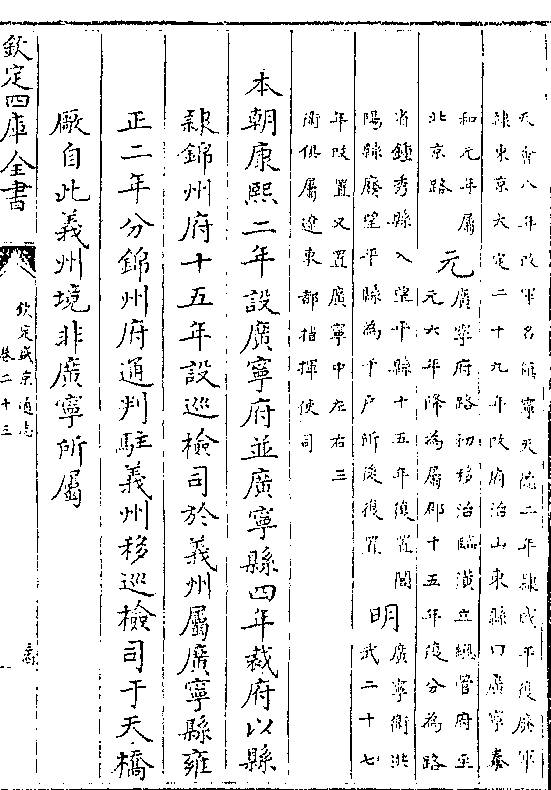 天會八年改軍名鎮寧天德二年隸咸平後廢軍
隸東京大定二十九年改府治山東縣曰廣寧泰
和元年屬
北京路
元
廣寧府路初移治臨潢立總管府至
元六年降為屬郡十五年復分為路
省鍾秀縣入望平縣十五年復置閭
陽縣廢望平縣為千戶所後復置
明
廣寧衛洪
武二十七
年改置又置廣寧中左右三
衛俱屬遼東都指揮使司
本朝康熙二年設廣寧府並廣寧縣四年裁府以縣
隸錦州府十五年設巡檢司於義州屬廣寧縣雍
正二年分錦州府通判駐義州移巡檢司于天橋
厰自此義州境非廣寧所屬
欽定四庫全書
欽定盛京通志
卷二十三